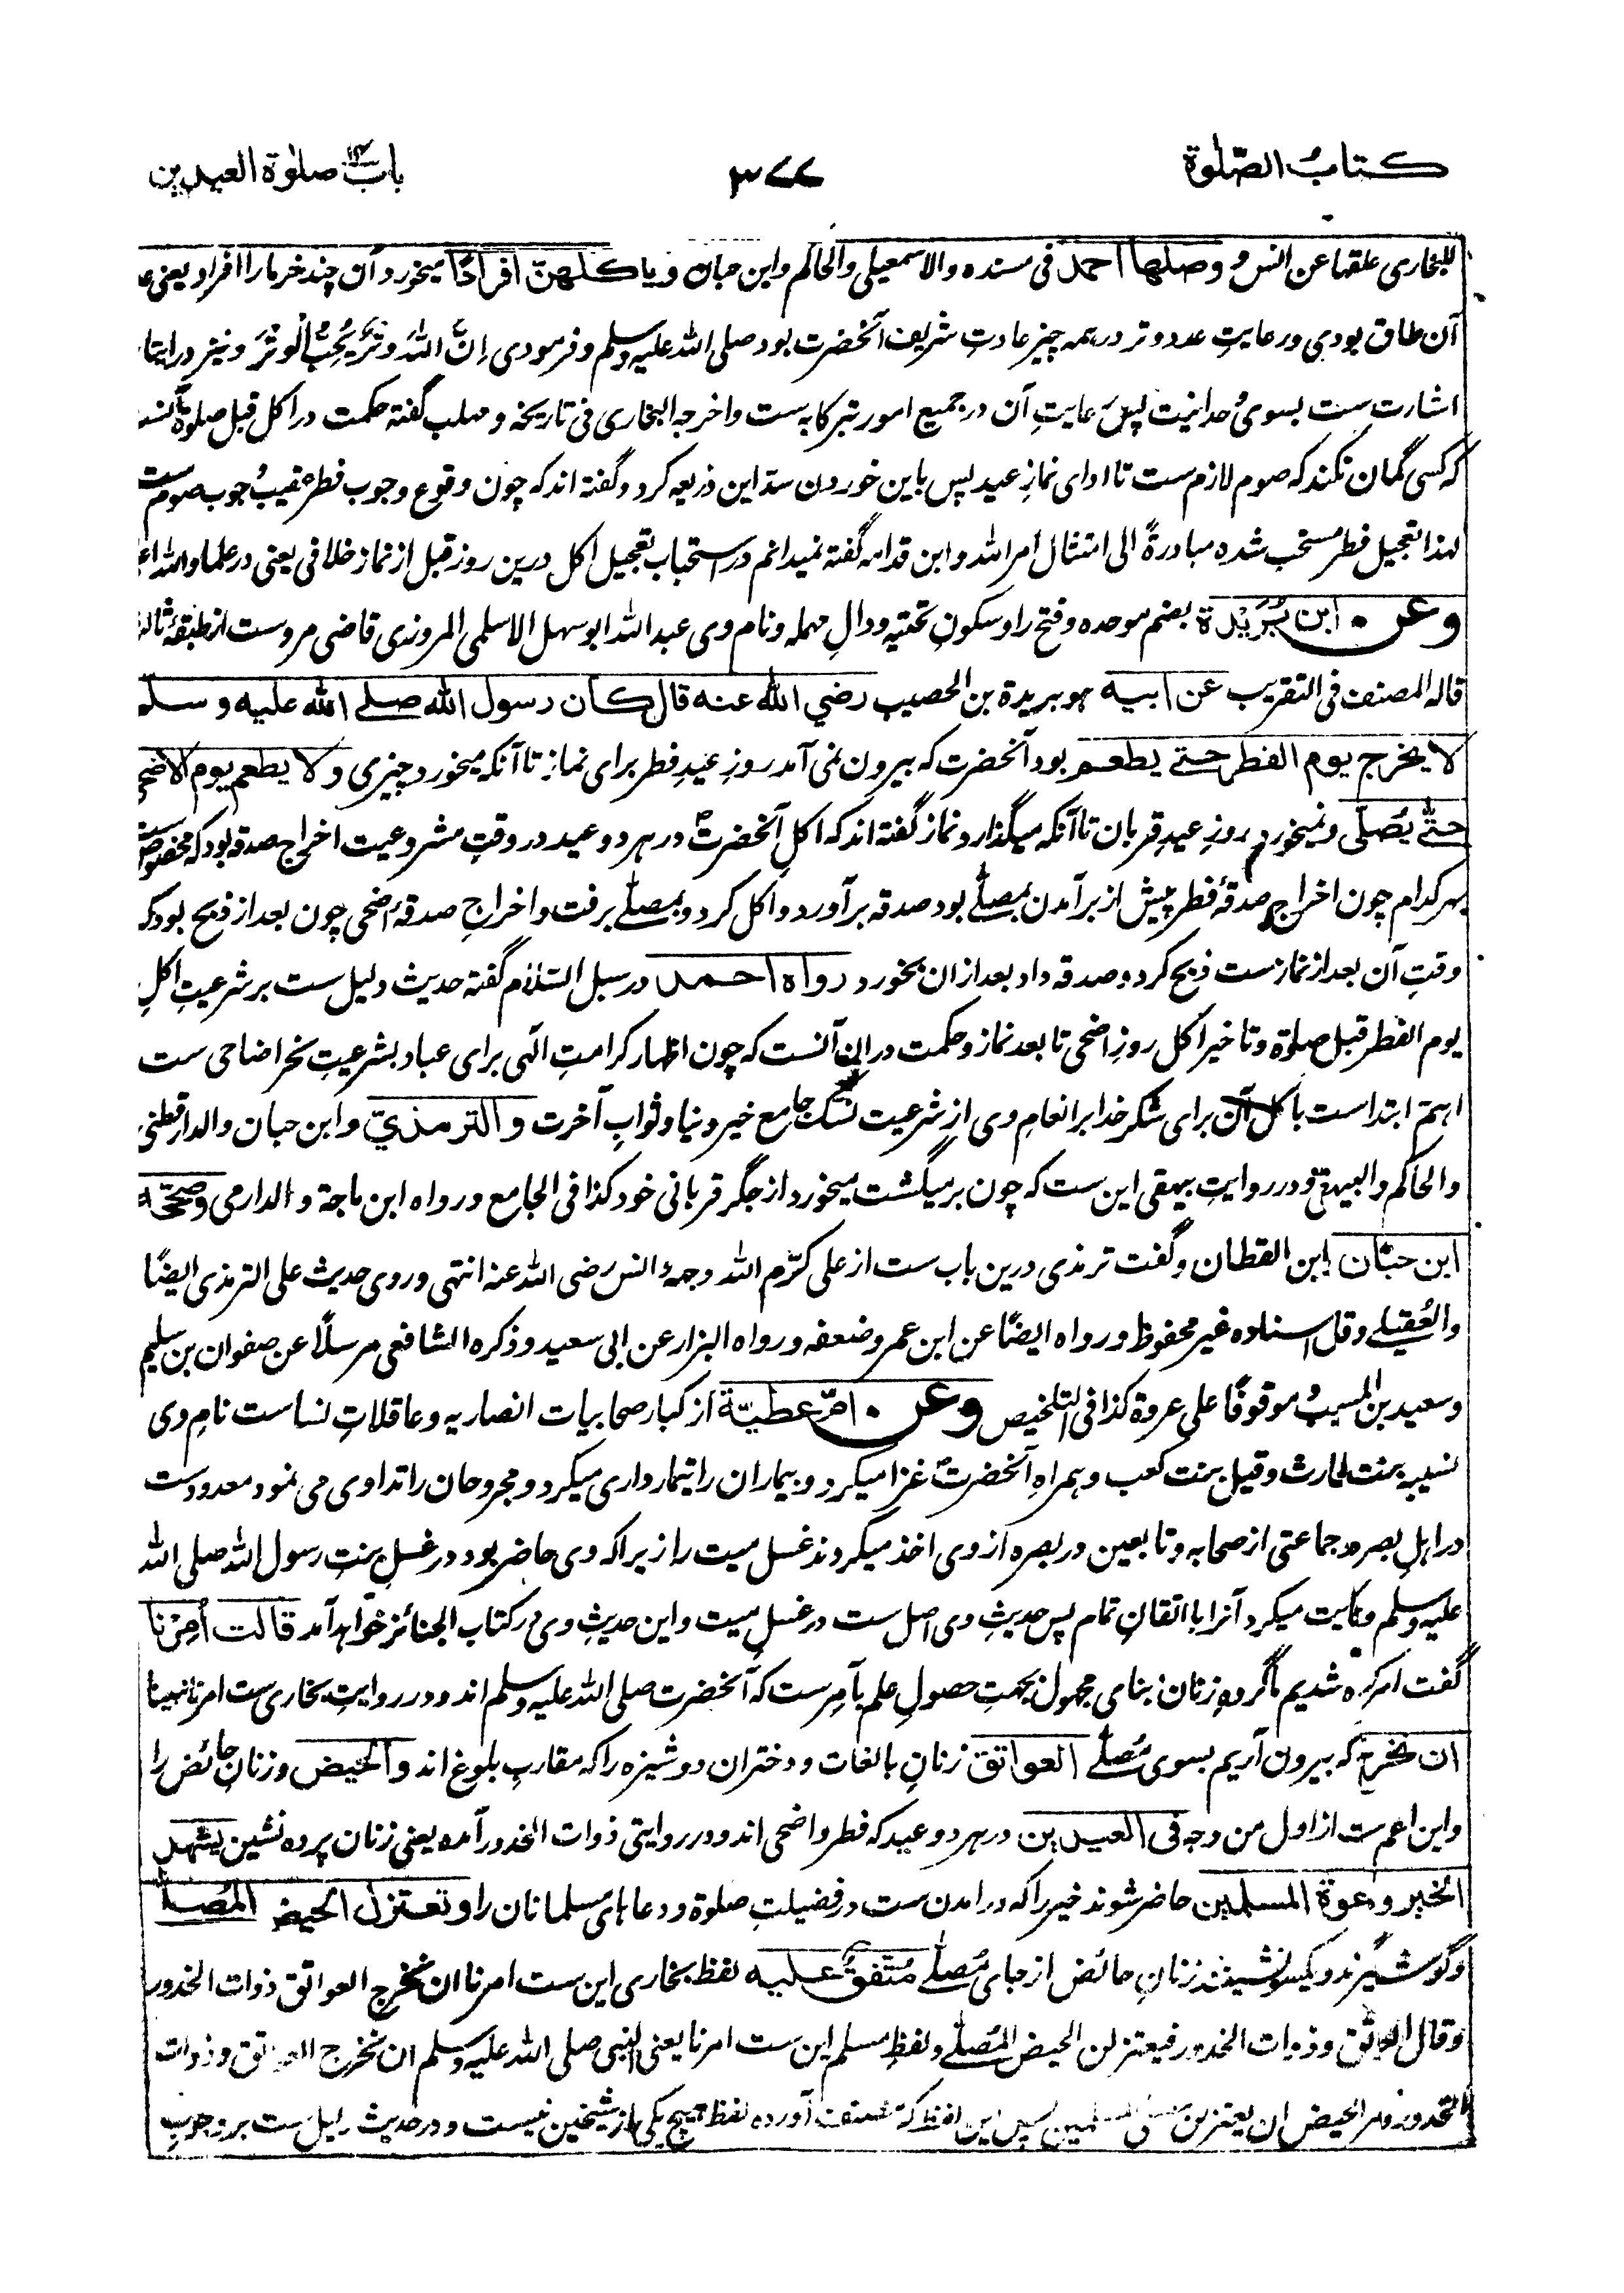 كتاب الصّلوة
٣٧٧
باب صلوٰة العيدين
للبخاری علقها عن انس و وصلها احمد فی مسنده والاسمعیلی والحاکم وابن حبان و یاکلهنّ افرادًا میخورد آن چند خرما را افراد یعنی
آن طاق بودی ورعایتِ عدد وتر در همه چیز عادتِ شریف آنحضرت بود صلی الله علیه وسلم و فرمودی اِنَّ اللهَ وِترٌ یُحِبُّ الْوِتْرَ و نیز در ایتار
اشارت ست بسوی وحدانیت پس رعایتِ آن در جمیع امور تبرکا به ست واخرجه البخاری فی تاریخه و مهلب گفته حکمت در اکل قبل صلوة آنست
که کسی گمان نکند که صوم لازم ست تا ادای نمازِ عید پس باین خوردن سدّ این ذریعه کرد و گفته اند که چون وقوع وجوب فطر عقیبِ وجوب صوم ست
لهذا تعجیل فطر مستحب شده مبادرةً الی امتثال امر الله وابن قدامه گفته نمیدانم در استحباب تعجیل اکل درین روز قبل از نماز خلافی یعنی در علما والله
وعن ابن بُرَیْدة بضم موحده و فتح را وسکونِ تحتیه و دالِ مهمله و نام وی عبد الله ابو سهل الاسلمی المروزی قاضی مرو ست از طبقهٔ ثالثه
قاله المصنف فی التقریب عن ابیه هو بریدة بن الحصیب رضي الله عنه قال کان رسول الله صلے الله علیه و سلم
لا یخرج یوم الفطر حتے یطعم بود آنحضرت که بیرون نمی آمد روزِ عیدِ فطر برای نماز تا آنکه میخورد چیزی ولا یطعم یوم الاضحی
حتّٰی یُصَلّی ونمیخورد روزِ عیدِ قربان تا آنکه میگذارد نماز گفته اند که اکلِ آنحضرت در هر دو عید در وقتِ مشروعیت اخراج صدقه بود که مخصوص ست
بهر کدام چون اخراجِ صدقهٔ فطر پیش از برآمدن بمصلّے بود صدقه برآورد و اکل کرد و بمصلّے برفت و اخراجِ صدقهٔ اضحی چون بعد از ذبح بود که
وقتِ آن بعد از نماز ست ذبح کرد و صدقه داد بعد ازان بخورد رواه احمد در سبل السّلام گفته حدیث دلیل ست بر شرعیتِ اکلِ
یوم الفطر قبل صلوة و تاخیر اکل روزِ اضحی تا بعد نماز و حکمت دران آنست که چون اظهار کرامتِ الهی برای عباد بشرعیتِ نحر اضاحی ست
اهم ابتدا ست باکل آن برای شکر خدا بر انعامِ وی از شرعیت نسک جامع خیر دنیا و ثوابِ آخرت والترمذيّ وابن حبان والدارقطنی
والحاکم والبیهقی و در روایتِ بیهقی این ست که چون بر میگشت میخورد از جگر قربانی خود کذا فی الجامع و رواه ابن ماجة و الدارمی وصحّحه
ابن حبّان ابن القطان و گفت ترمذی درین باب ست از علی کرّم الله وجههٔ انس رضی الله عنه انتهی وروی حدیث علی الترمذی ایضًا
والعُقیلے وقال اسناده غیر محفوظ ورواه ایضًا عن ابن عمر وضعفه و رواه البزار عن ابی سعید وذکره الشافعی مرسلًا عن صفوان بن سلیم
وسعید بن المسیب و موقوفًا علی عروة کذا فی التلخیص وعن امّ عطیّة از کبار صحابیات انصاریه و عاقلاتِ نسا ست نامِ وی
نسیبه بنت الحارث وقیل بنت کعب و همراهِ آنحضرت غزا میکرد و بیماران را تیمارداری میکرد و مجروحان را تداوی می نمود معدود ست
در اهلِ بصره جماعتی از صحابه و تابعین در بصره از وی اخذ میکردند غسل میت را زیرا که وی حاضر بود در غسلِ بنتِ رسول الله صلی الله
علیه وسلم و حکایت میکرد آنرا با اتقانِ تمام پس حدیثِ وی اصل ست در غسلِ میت و این حدیثِ وی در کتاب الجنائز خواهد آمد قالت اُمِرْنا
گفت امر کرده شدیم ما گروهِ زنان بنای مجهول بجهتِ حصولِ علم بآمِر ست که آنحضرت صلی الله علیه وسلم اند و در روایتِ بخاری ست امرنا نبینا
ان نخرج که بیرون آریم بسوی مُصلّے العواتق زنانِ بالغات و دخترانِ دوشیزه را که مقاربِ بلوغ اند والحُیّض و زنانِ حائض را
واین اعم ست از اول من وجه فی العیدین در هر دو عید که فطر واضحی اند و در روایتی ذوات الخدور آمده یعنی زنان پرده نشین یشهدن
الخیر ودعوة المسلمین حاضر شوند خیر را که در آمدن ست در فضیلتِ صلوة و دعاهای مسلمانان را و تعتزل الحیّض المُصلّے
وگوشه گیرند و یکسو نشینند زنانِ حائض از جای مُصلّے مُتّفقٌ علیه لفظ بخاری این ست امرنا ان نخرج العواتق ذوات الخدور
وقال العواتق وذوات الخدور فیعتزلن الحیض المُصلّے ولفظِ مسلم این ست امرنا یعنی النبی صلی الله علیه وسلم ان نخرج العواتق وذوات
الخدور وامر الحیض ان یعتزلن مصلی المسلمین پس این لفظ که مصنف آورده لفظ هیچ یکی از شیخین نیست و در حدیث دلیل ست بر وجوبِ